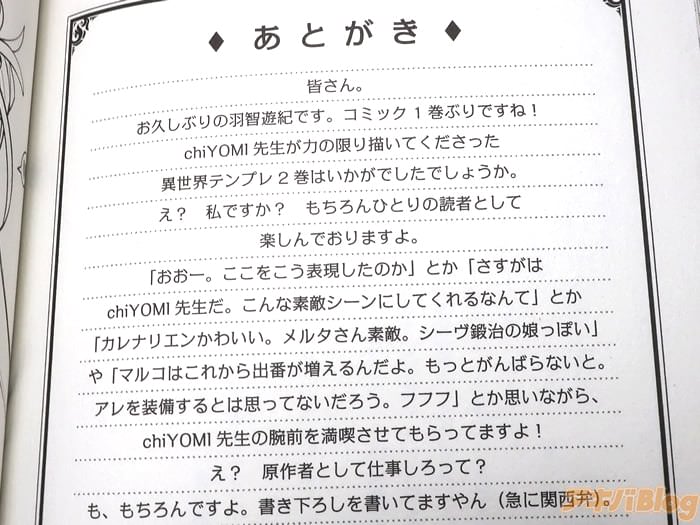 ♦ あとがき ♦
皆さん。
お久しぶりの羽智遊紀です。コミック1巻ぶりですね！
chiYOMI先生が力の限り描いてくださった
異世界テンプレ2巻はいかがでしたでしょうか。
え？　私ですか？　もちろんひとりの読者として
楽しんでおりますよ。
「おおー。ここをこう表現したのか」とか「さすがは
chiYOMI先生だ。こんな素敵シーンにしてくれるなんて」とか
「カレナリエンかわいい。メルタさん素敵。シーヴ鍛治の娘っぽい」
や「マルコはこれから出番が増えるんだよ。もっとがんばらないと。
アレを装備するとは思ってないだろう。フフフ」とか思いながら、
chiYOMI先生の腕前を満喫させてもらってますよ！
え？　原作者として仕事しろって？
も、もちろんですよ。書き下ろしを書いてますやん（急に関西弁）。
アキバBlog